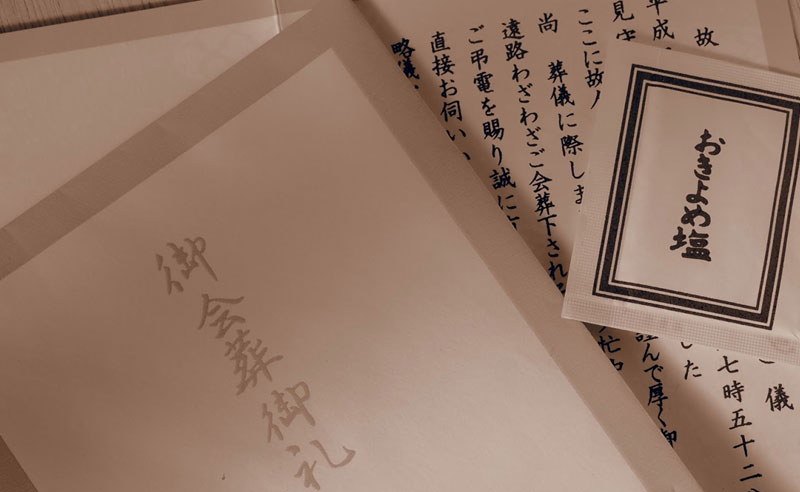 故
儀
平成
七時五十二
見守
した
ここに故
尚 葬儀に際しま
謹んで厚く御
遠路わざわざご会葬下され
忙中
ご弔電を賜り誠に
直接お伺い
略儀
御会葬御礼
おきよめ塩